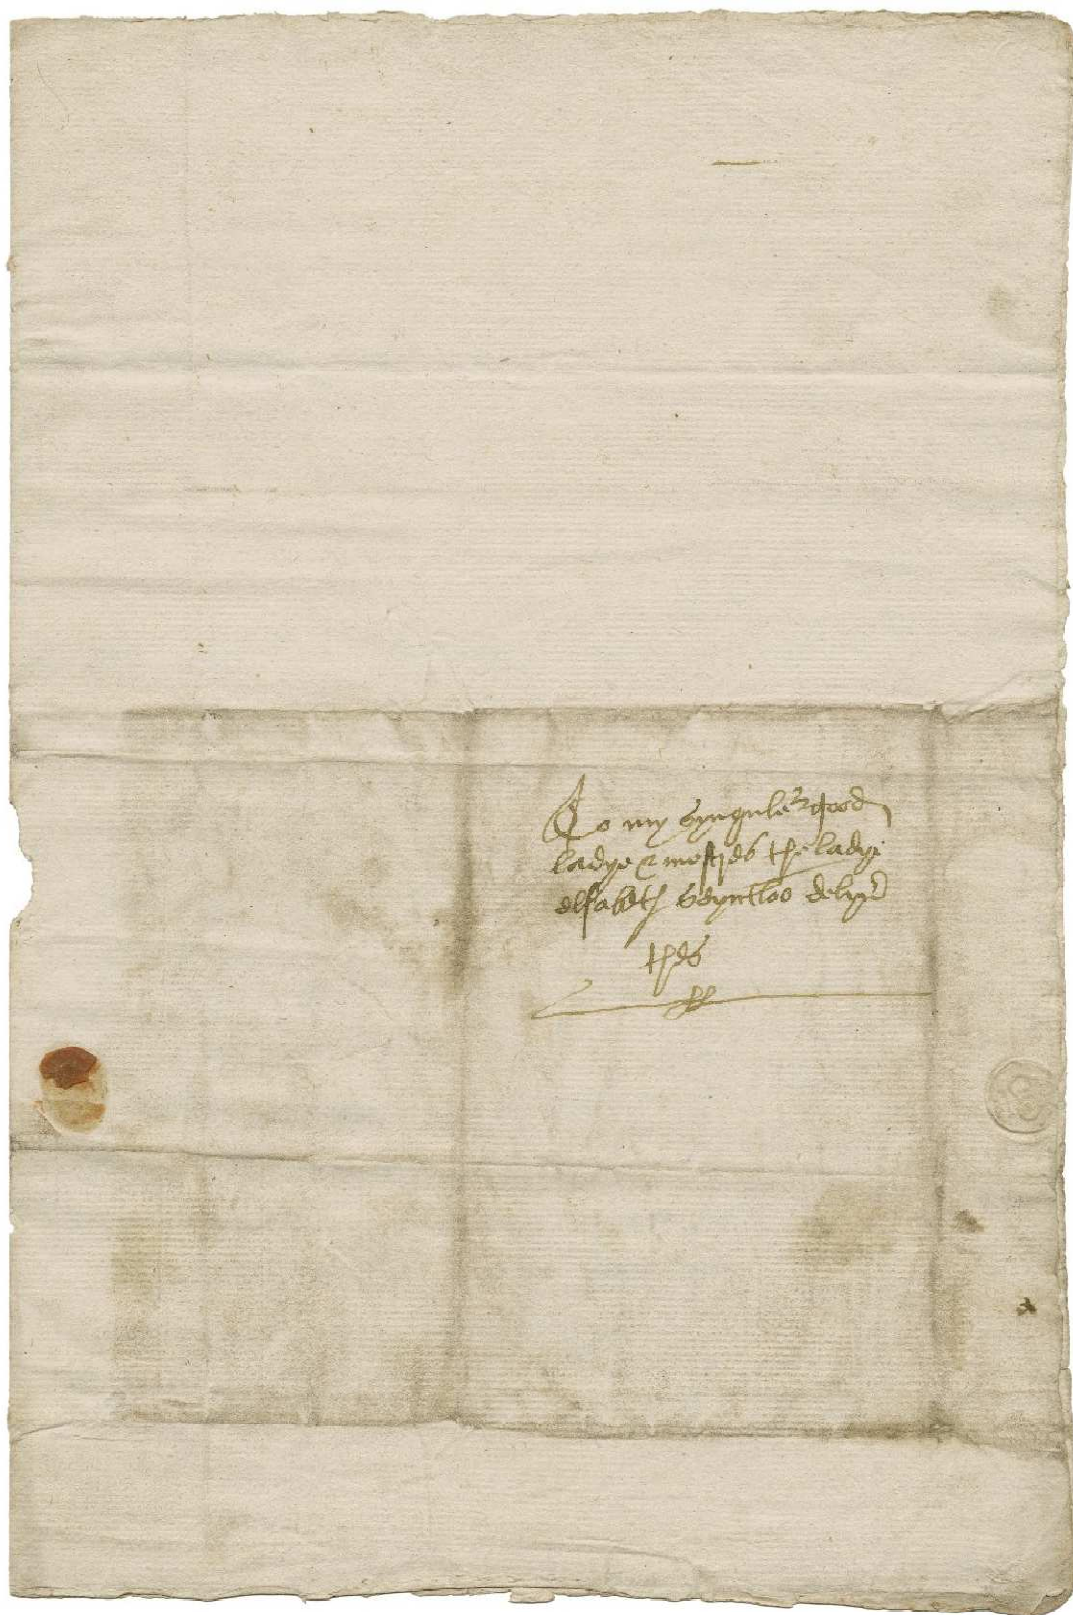 To my synguler good
ladye & mestres the ladye
elsabeth Seyntloo delyver
thes